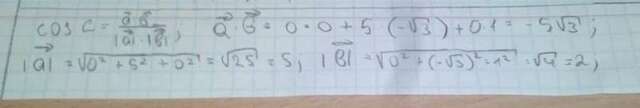 cos C = \frac{\vec{a} \cdot \vec{b}}{|\vec{a}| \cdot |\vec{b}|}; \vec{a} \cdot \vec{b} = 0 · 0 + 5 · (-√3) + 0 · 1 = -5√3;
|\vec{a}| = √(0² + 5² + 0²) = √25 = 5, |\vec{b}| = √(0² + (-√3)² + 1²) = √4 = 2,